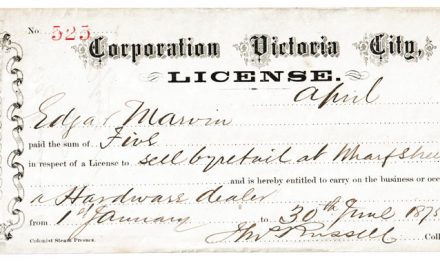 No. 525
Corporation Victoria City,
LICENSE.
April
Edgar Marvin
paid the sum of Five
in respect of a License to sell by retail at Wharf Stree
and is hereby entitled to carry on the business or occ
a Hardware dealer
from 1st January to 30th June 187
Colonist Steam Presses. Jno Russell Coll